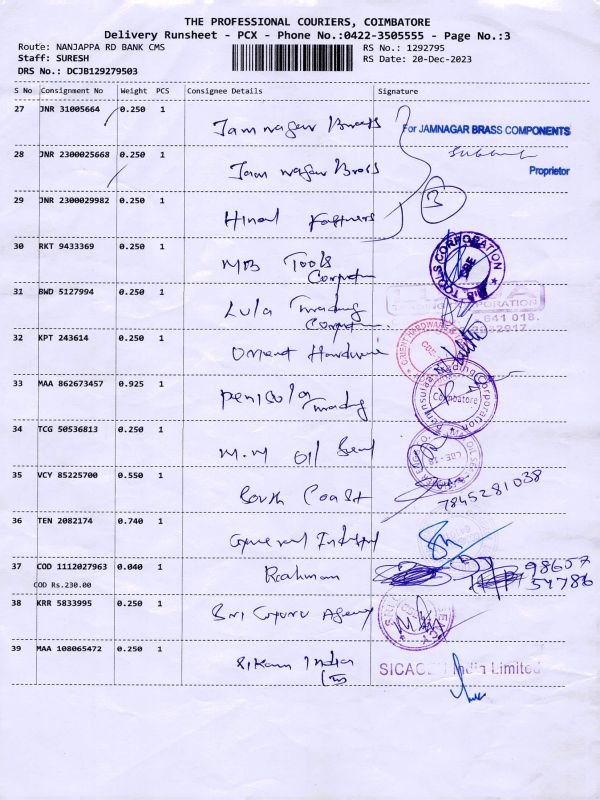 THE PROFESSIONAL COURIERS, COIMBATORE
Delivery Runsheet - PCX - Phone No.:0422-3505555 - Page No.:3
Route: NANJAPPA RD BANK CMS RS No.: 1292795
Staff: SURESH RS Date: 20-Dec-2023
DRS No.: DCJB129279503
S No Consignment No Weight PCS Consignee Details Signature
27 JNR 31005664 0.250 1 Jamnagar Brass For JAMNAGAR BRASS COMPONENTS
28 JNR 2300025668 0.250 1 Jamnagar Brass Proprietor
29 JNR 2300029982 0.250 1 3
30 RKT 9433369 0.250 1 MB Tools Corporation TOOLS CORPORATION
31 BWD 5127994 0.250 1 Lula Trading Corporation CORPORATION
641 018.
32 KPT 243614 0.250 1 Orient Hardware ORIENT HARDWARE
33 MAA 862673457 0.925 1 Penisula Trading Peninsulaa Trading Corporation
Coimbatore
34 TCG 50536813 0.250 1 M.M Oil Seal
35 VCY 85225700 0.550 1 South Coast 7845281038
36 TEN 2082174 0.740 1 General
37 COD 1112027963 0.040 1 Rahman 98657
COD Rs.230.00 54786
38 KRR 5833995 0.250 1 Sri Guru Agency
39 MAA 108065472 0.250 1 India India Limited